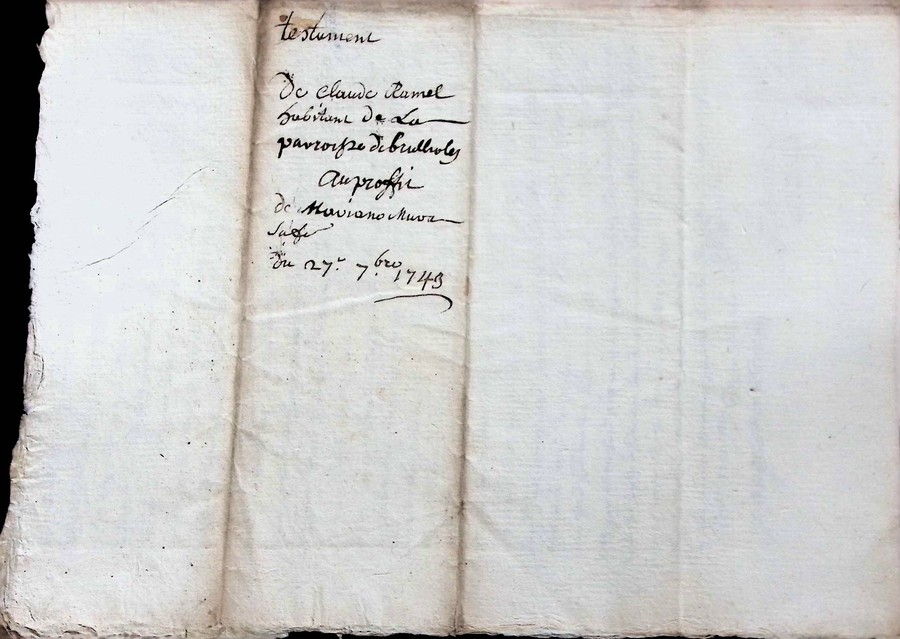 testament
De claude Ramel
habitant de La
parroisse de brullioles
Au proffit
de
Du 27.e 7.bre 1743